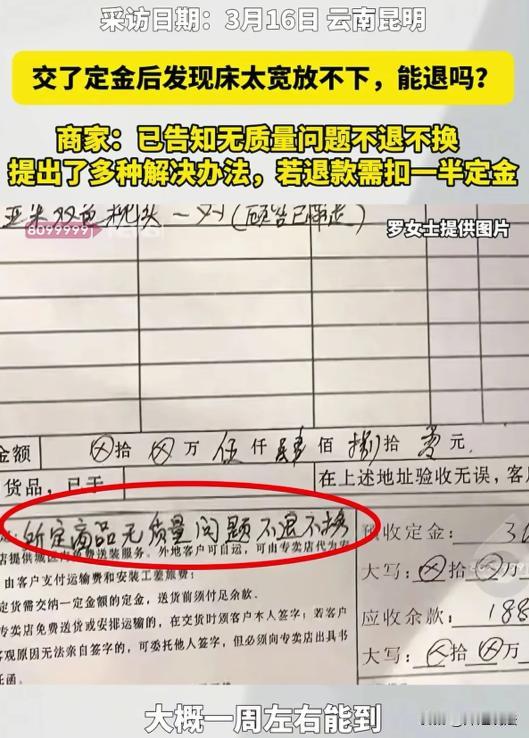 采访日期：3月16日 云南昆明
交了定金后发现床太宽放不下，能退吗？
商家：已告知无质量问题不退不换
提出了多种解决办法，若退款需扣一半定金
8099999
罗女士提供图片
金额
拾 万 伍 仟 肆 佰 捌 拾 零 元
货品，已于
在上述地址验收无误，客
所定商品无质量问题不退不换
预收定金：
店提供城区内免费送装服务。外地客户可自运，可由专卖店代为安
大写： 拾 万
由客户支付运输费和安装工差旅费；
定货需交纳一定金额的定金，送货前须付足余款。
应收余款：188
专卖店免费送货或安排运输的，在交货时须客户本人签字；若客户
大写： 拾 万
客观原因无法亲自签字的，可委托他人签字，但必须向专卖店出具书
托函。
大概一周左右能到